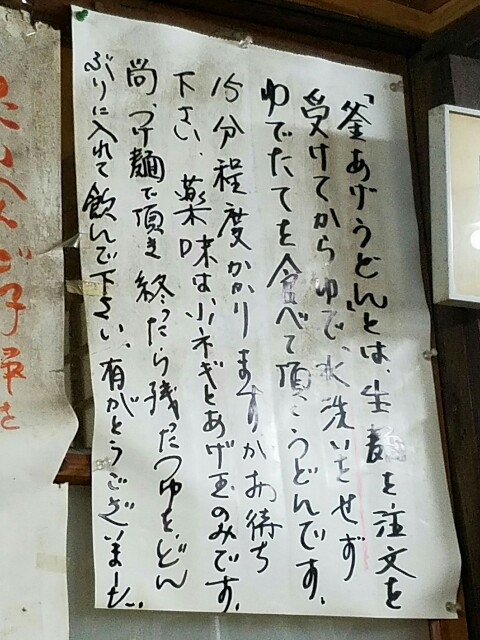 「釜あげうどん」とは、生麺を注文を
受けてからゆで、水洗いをせず
ゆでたてを食べて頂くうどんです。
15分程度かかりますがお待ち
下さい、薬味は小ネギとあげ玉のみです。
尚、つけ麺で頂き終ったら残ったつゆを、どん
ぶりに入れて飲んで下さい、有がとうございました。